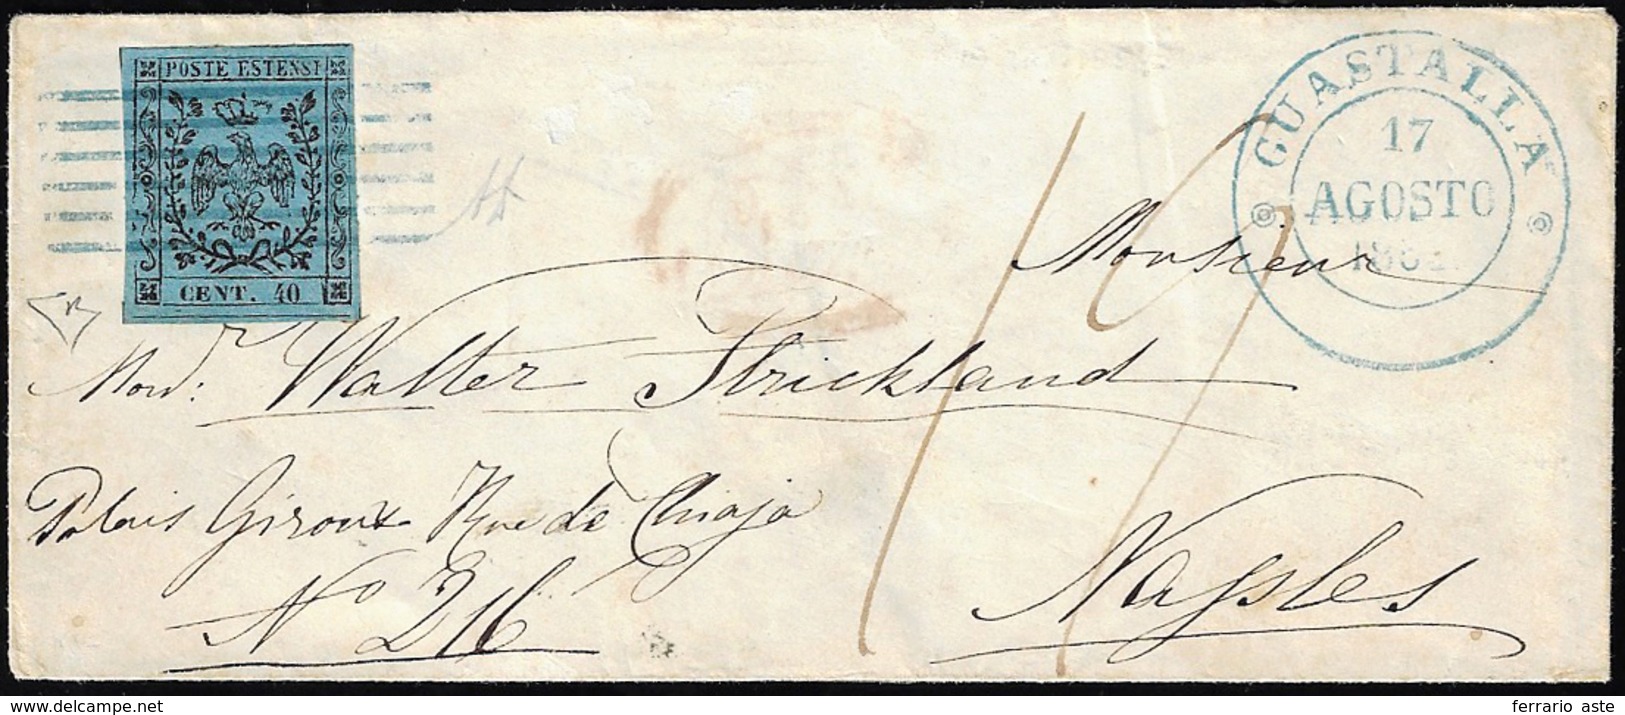 POSTE ESTENSI
CENT. 40
GUASTALLA
17
AGOSTO
Monsieur
Mons: Walter Strickland
Palais Giroux Rue de Chiaja
No 216
Naples
www.delcampe.net
ferrario aste